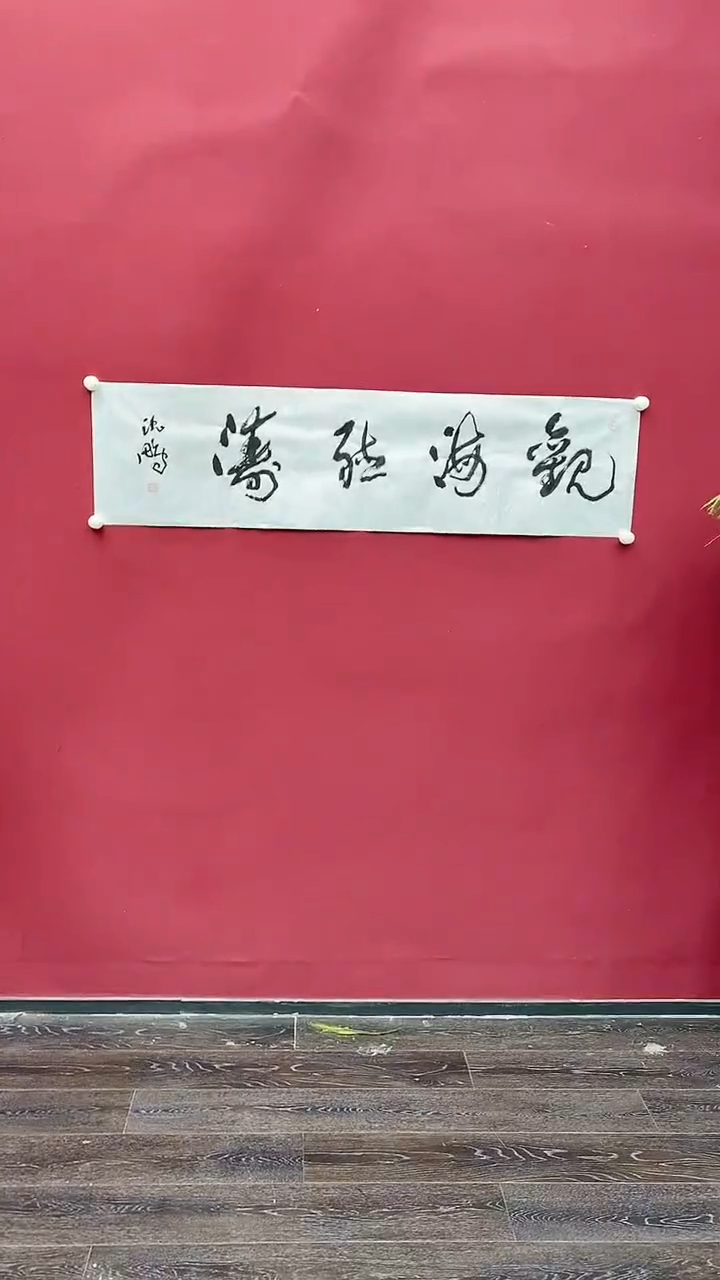 觀海聽濤
沈鵬